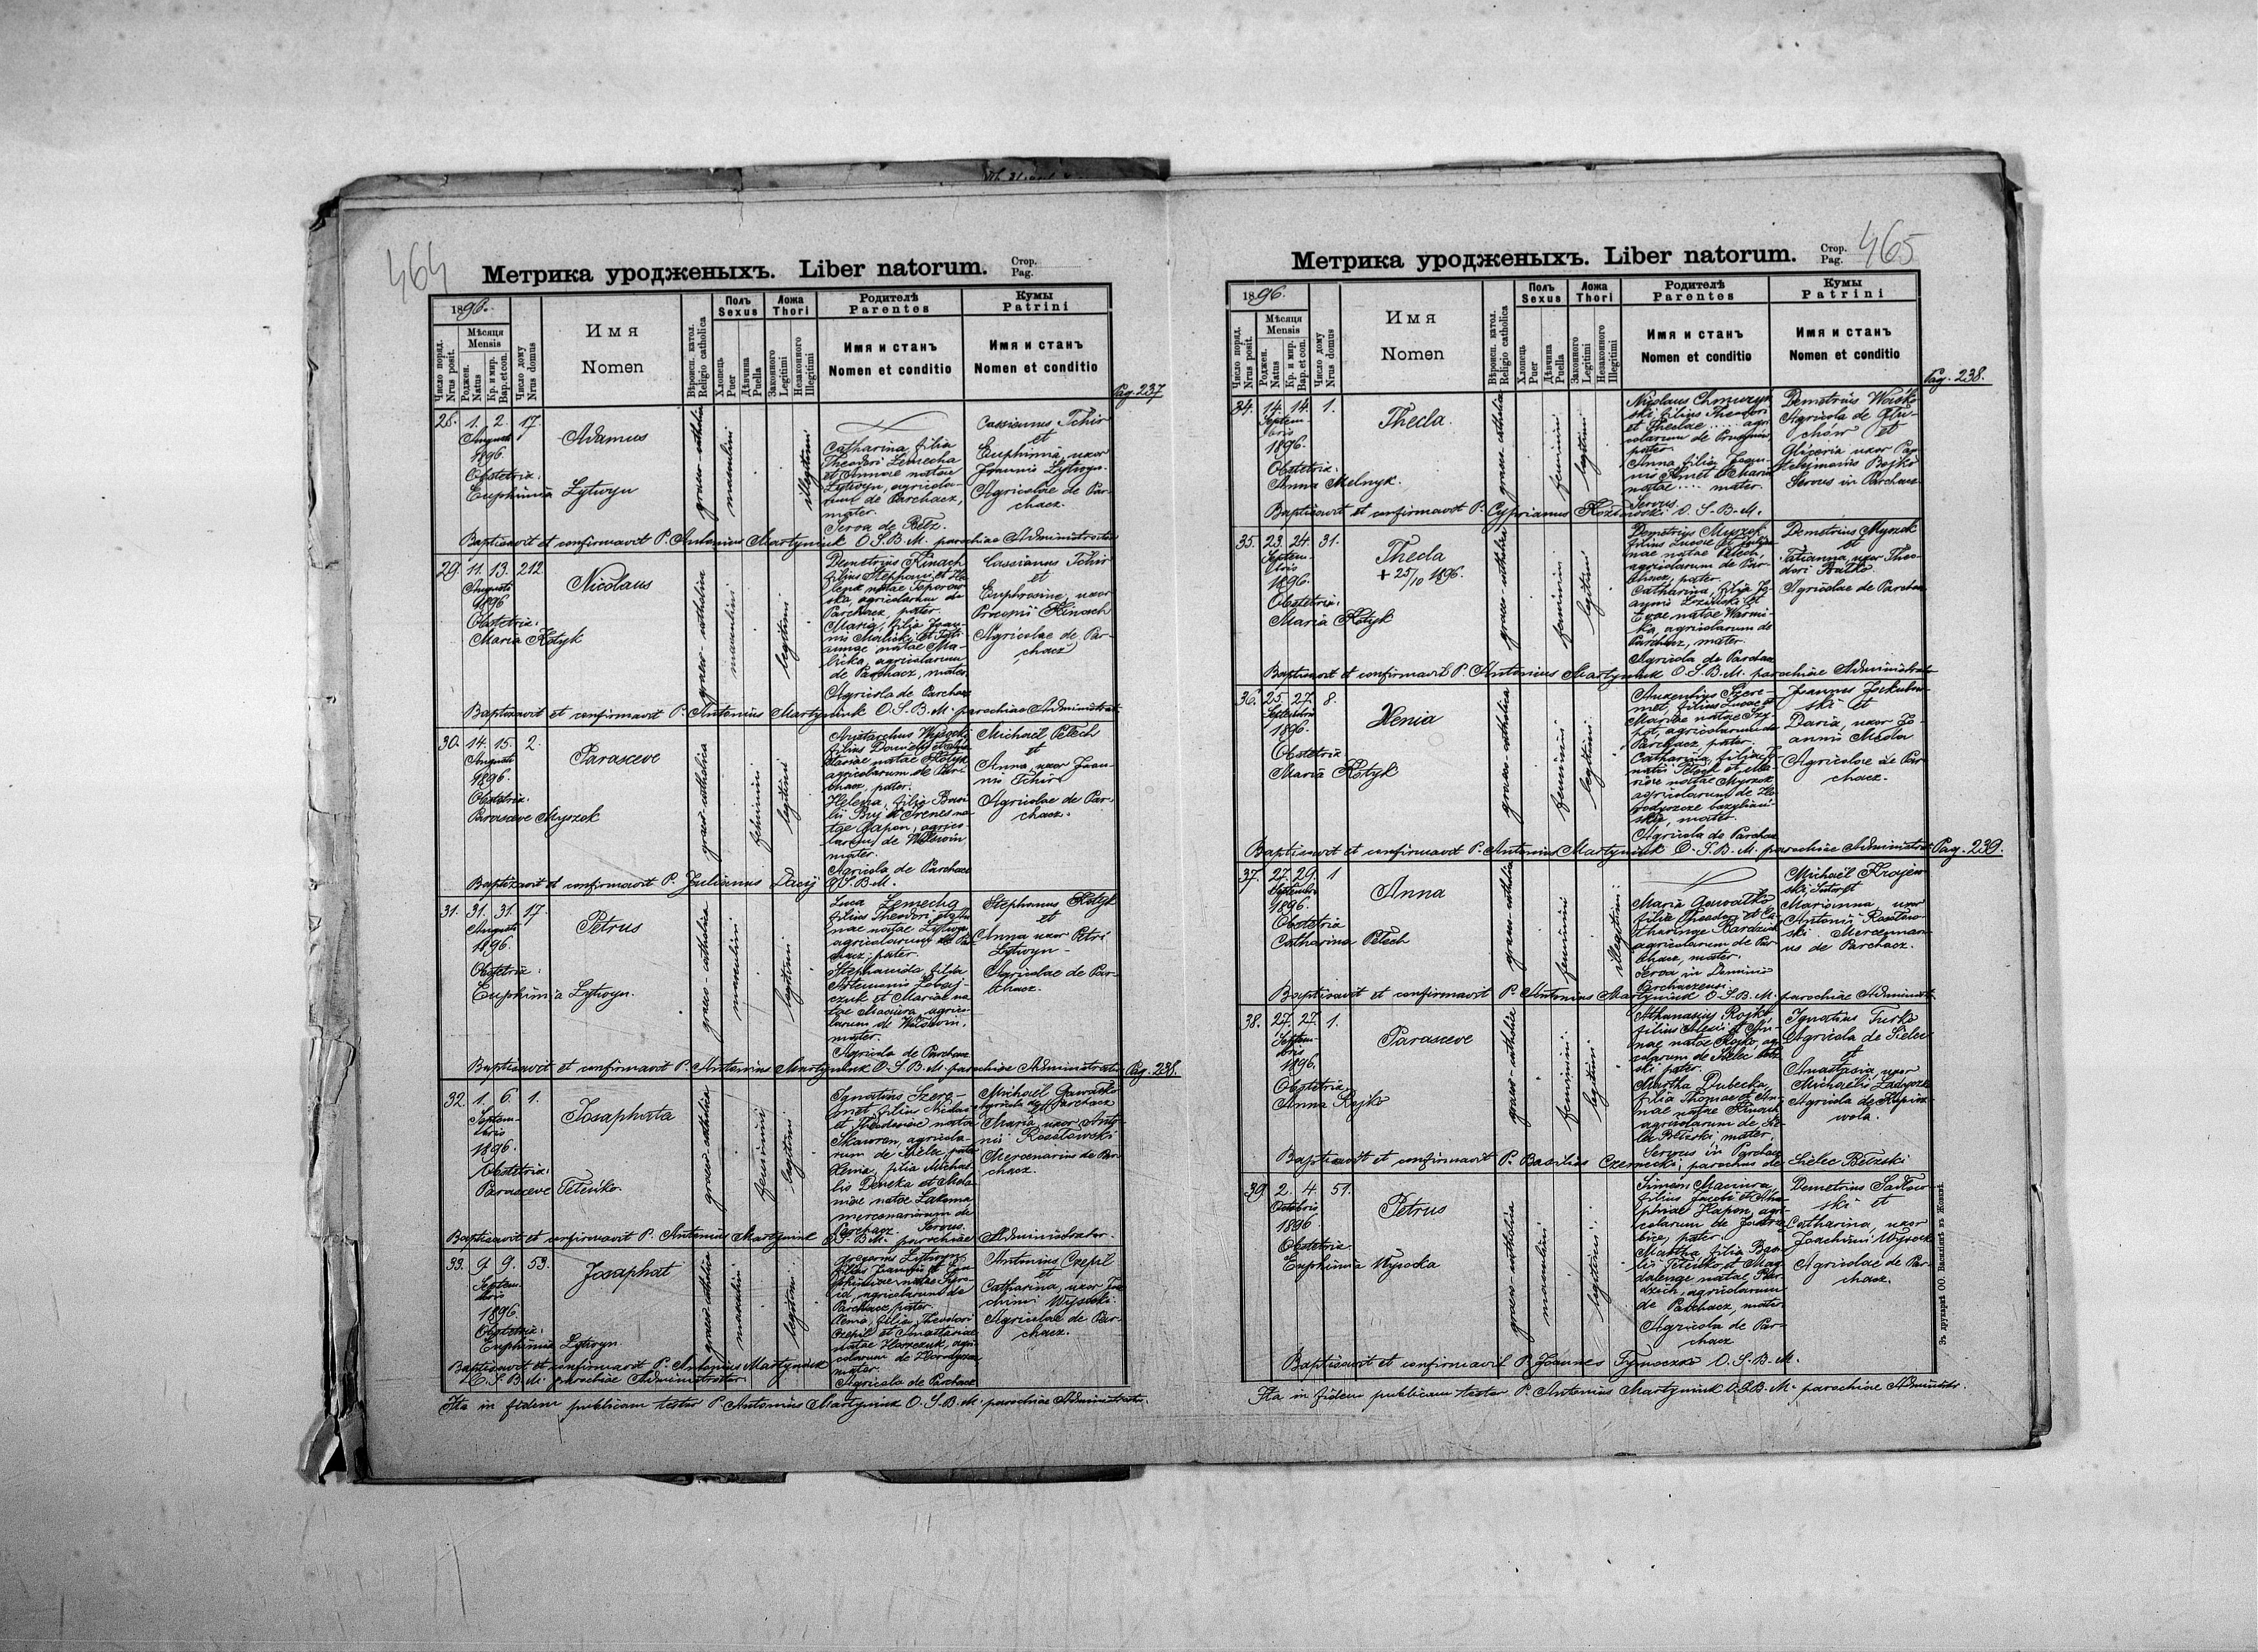 464
Метрика уродженыхъ. Liber natorum.
Стор.
Pag.
1896.
Число поряд.
Nrus posit.
Мѣсяця
Mensis
Роджен.
Natus
Кр. и мир.
Bap. et con.
Число дому
Nrus domus
Имя
Nomen
Вѣроисп. катол.
Religio catholica
Полъ
Sexus
Хлопець
Puer
Дѣвчина
Puella
Ложа
Thori
Законного
Legitimi
Незаконного
Illegitimi
Родителѣ
Parentes
Имя и станъ
Nomen et conditio
Кумы
Patrini
Имя и станъ
Nomen et conditio
Pag. 237
28. 1. 2. 17.
Augusti
1896.
Obstetrix:
Euphimia Lytwyn
Adamus
graeco-catholica
masculini
illegitimi
Catharina filia
Theodori Lemecha
et Annae natae
Lytwyn, agricola-
rum de Parchacz,
mater.
Serva de Bełz.
Cassianus Tchir
et
Euphimia, uxor
Joannis Lytwyn.
Agricolae de Par-
chacz.
Baptisavit et confirmavit P. Antonius Martyniuk O.S.B.M. parochiae Administrator
29. 11. 13. 212.
Augusti
1896
Obstetrix:
Maria Kotyk
Nicolaus
graeco-catholica
masculini
legitimi
Demetrius Kinach
filius Stephani et He-
lenae natae Toporow-
ska, agricolarum de
Parchacz, pater.
Maria, filia Joan-
nis
natae Ma-
licka, agricolarum
de Parchacz, mater
Agricola de Parchacz
Cassianus Tchir
et
Euphrosine, uxor
Procopii Kinach
Agricolae de Par-
chacz
Baptisavit et confirmavit P. Antonius Martyniuk O.S.B.M. parochiae Administrator
30. 14. 15. 2.
Augusti
1896.
Obstetrix.
Parasceve Myszok
Parasceve
graeco-catholica
feminini
legitimi
Aristarchus Wysocki
natae Kotyk
agricolarum de Par-
chacz, pater.
Helena, filia Basi-
lii Bryj et Irenes na-
tae Hapon, agrico-
larum de Wolswin
mater.
Agricola de Parchacz
Michaël Pelech
et
Anna, uxor Joan-
nis Tchir
Agricolae de Par-
chacz.
Baptizavit et confirmavit P. Julianus Dacij O.S.B.M.
31. 31. 31. 17.
Augusti
1896.
Obstetrix:
Euphimia Lytwyn.
Petrus
graeco-catholica
masculini
legitimi
Luca Lemecha
filius Theodori et An-
nae natae Lytwyn
agricolarum de Par-
chacz, pater.
Stephanida, filia
Artemonis
czuk et Mariae na-
tae Maciura, agrico-
larum de Wolswin,
mater.
Agricola de Parchacz
Stephanus Kotyk
et
Anna uxor Petri
Lytwyn
Agricolae de Par-
chacz.
Baptisavit et confirmavit P. Antonius Martyniuk O.S.B.M. parochiae Administrator Pag. 238.
32. 1. 6. 1.
Septem-
bris
1896.
Obstetrix:
Parasceve Teteńko.
Josaphata
graeco-catholica
feminini
legitimi
Ignatius Szere-
met, filius Nicolai
et Theodosiae natae
Skawron, agricola-
rum de Sielec, pater
Xenia, filia Micha-
lis Deneka et Mela-
niae natae Lakoma,
mercenariorum de
Parchacz Servus.
Michaël Gawalko
Agricola de Parchacz
et
Maria uxor Anto-
nii Rosołowski
Mercenarius de Par-
chacz.
Baptisavit et confirmavit P. Antonius Martyniuk O.S.B.M. parochiae Administrator.
33. 9. 9. 53.
Septem-
bris
1896.
Obstetrix:
Euphimia Lytwyn.
Josaphat
graeco-catholica
masculini
legitimi
Lytwyn,
agricolarum de
Parchacz, pater.
Xenia, filia Theodori
Czepil et Anastasiae
natae Harczuk, agri-
colarum de Horodyszcze
mater.
Agricola de Parchacz
Antonius Czepil
et
Catharina, uxor Joa-
chimi Wysocki.
Agricolae de Par-
chacz.
Baptisavit et confirmavit P. Antonius Martyniuk
O.S.B.M. parochiae Administrator.
Ita in fidem publicam testor P. Antonius Martyniuk O.S.B.M. parochiae Administrator.
465
Метрика уродженыхъ. Liber natorum.
Стор.
Pag.
1896.
Число поряд.
Nrus posit.
Мѣсяця
Mensis
Роджен.
Natus
Кр. и мир.
Bap. et con.
Число дому
Nrus domus
Имя
Nomen
Вѣроисп. катол.
Religio catholica
Полъ
Sexus
Хлопець
Puer
Дѣвчина
Puella
Ложа
Thori
Законного
Legitimi
Незаконного
Illegitimi
Родителѣ
Parentes
Имя и станъ
Nomen et conditio
Кумы
Patrini
Имя и станъ
Nomen et conditio
Pag. 238.
34. 14. 14. 1.
Septem-
bris
1896.
Obstetrix:
Anna Melnyk.
Thecla.
graeco-catholica
feminini
legitimi
Nicolaus Chmurzyn-
ski, filius Theodori
et Theclae .... agri-
colarum de
pater.
Anna filia Joan-
nis Semet et Mariae
natae .... mater.
Servus.
Demetrius
Agricola de Głu-
chów et
Gliceria uxor Par-
Bojko
Servus in Parchacz
Baptisavit et confirmavit P. Cyprianus Kozłowski O.S.B.M.
35. 23. 24. 31.
Septem-
bris
1896.
Obstetrix:
Maria Kotyk
Thecla
+ 25/10 1896.
graeco-catholica
feminini
legitimi
Demetrius Myszok
filius Lucae et Julian-
nae natae Pelech,
agricolarum de Par-
chacz, pater.
Catharina, filia Jo-
annis Łoziński et
Evae natae Warmi-
ka, agricolarum de
Parchacz, mater.
Agricola de Parchacz
Demetrius Myszok
et
Tatianna, uxor Theo-
dori Bałko
Agricolae de Parchacz
Baptisavit et confirmavit P. Antonius Martyniuk O.S.B.M. parochiae Administrator
36. 25. 27. 8.
Septembris
1896.
Obstetrix
Maria Kotyk
Xenia
graeco-catholica
feminini
legitimi
Auxentius Szere-
met, filius Lucae et
Mariae natae
agricolarum de
Parchacz, pater.
Catharina, filia Ig-
natii Pelech et Ma-
riae natae Myszok
agricolarum de Ho-
rodyszcze bazyliań-
skie, mater.
Agricola de Parchacz
Joannes Jackubow-
ski et
Daria, uxor Jo-
annis Meola
Agricolae de Par-
chacz.
Baptisavit et confirmavit P. Antonius Martyniuk O.S.B.M. parochiae Administrator Pag. 239.
37. 27. 29. 1
Septembris
1896.
Obstetrix
Catharina Pelech
Anna
graeco-catholica
feminini
illegitimi
Maria Gawalko
filia Theodori et Ca-
tharinae Bardzich
agricolarum de Par-
chacz, mater.
Serva in Dominio
Parchaczensi
Michaël Krajew-
ski Sutor et
Marianna uxor
Antonii Rosołow-
ski. Mercenari-
us de Parchacz.
Baptisavit et confirmavit P. Antonius Martyniuk O.S.B.M. parochiae Administrator
38. 27. 27. 1.
Septem-
bris
1896.
Obstetrix
Anna Rojko
Parasceve
graeco-catholica
feminini
legitimi
Athanasius Rojko,
filius Alexii et An-
nae natae Rojko, ag-
ricolarum de Sielec Bełz-
ski pater.
Martha Dubecka,
filia Thomae et An-
nae natae Kinach
agricolarum de Sie-
lec Bełzski, mater.
Servus in Parchacz
Ignatius Turko
Agricola de Sielec
et
Anastasia, uxor
Michaëlis Ladyczka
Agricola de
wola.
Baptisavit et confirmavit P. Basilius Czernecki, parochus de Sielec Bełzski
39. 2. 4. 51.
Octobris
1896.
Obstetrix
Euphimia Wysocka
Petrus
graeco-catholica
masculini
legitimi
Simeon Maciura,
filius Jacobi et Aga-
phiae Hapon, agri-
colarum de Jastrzę-
bica, pater
Martha, filia Basi-
lii Teteńko et Mag-
dalenae natae Bar-
dzich, agricolarum
de Parchacz, mater
Agricola de Par-
chacz
Demetrius Sadłow-
ski et
Catharina, uxor
Joachimi Wysocki
Agricolae de Par-
chacz.
Baptisavit et confirmavit P. Joannes Tymoczko O.S.B.M.
Ita in fidem publicam testor P. Antonius Martyniuk O.S.B.M. parochiae Administr.
Зъ друкарнѣ ОО. Василіянъ въ Жовквѣ.